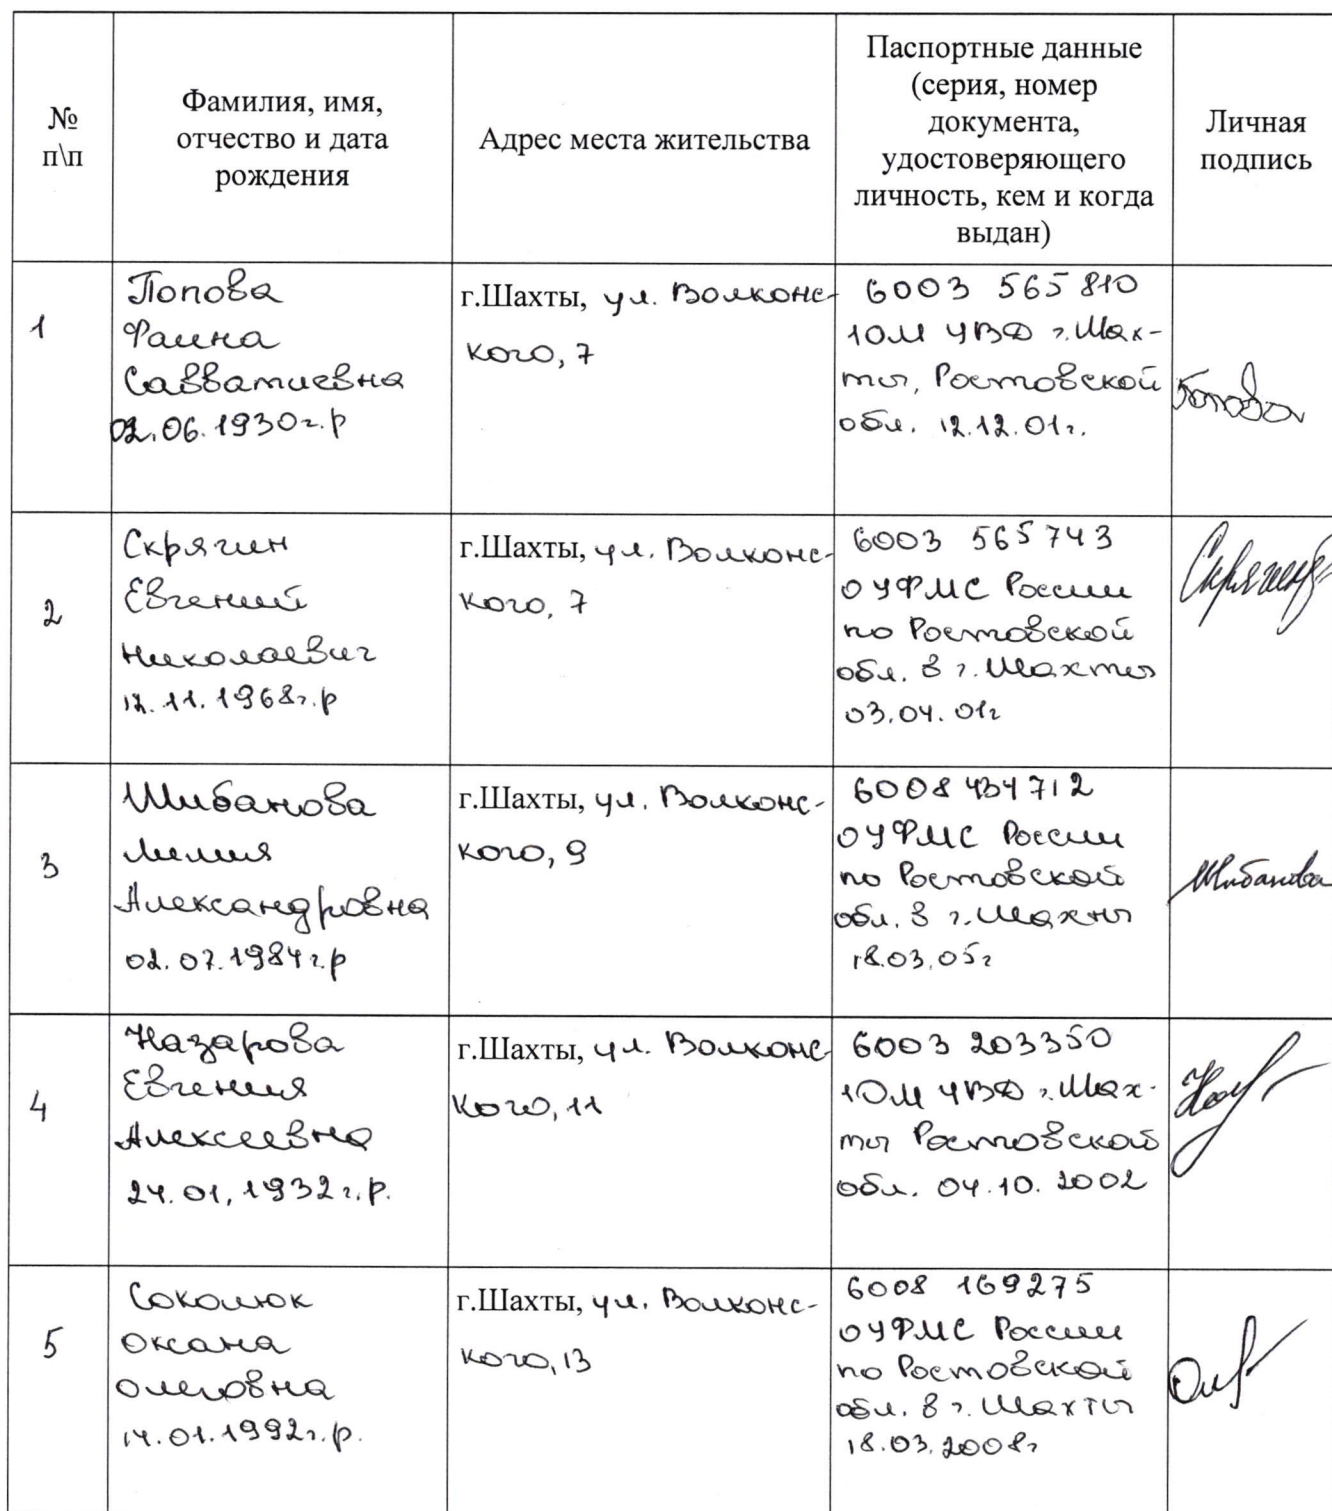 №
п\п
Фамилия, имя,
отчество и дата
рождения
Адрес места жительства
Паспортные данные
(серия, номер
документа,
удостоверяющего
личность, кем и когда
выдан)
Личная
подпись
1
Попова
Фаина
Савватиевна
02.06.1930г.р
г.Шахты, ул. Волконс-
кого, 7
6003 565810
1ОМ УВД г.Шах-
ты, Ростовской
обл. 12.12.01г.
Попова
2
Скрягин
Евгений
Николаевич
12.11.1968г.р
г.Шахты, ул. Волконс-
кого, 7
6003 565743
ОУФМС России
по Ростовской
обл. в г.Шахты
03.04.01г
Скрягин
3
Шибанова
Лилия
Александровна
02.07.1984г.р
г.Шахты, ул. Волконс-
кого, 9
6008 434712
ОУФМС России
по Ростовской
обл. в г.Шахты
18.03.05г
Шибанова
4
Назарова
Евгения
Алексеевна
24.01.1932г.р.
г.Шахты, ул. Волконс-
кого, 11
6003 203350
1ОМ УВД г.Шах-
ты Ростовской
обл. 04.10.2002
5
Соколюк
Оксана
Олеговна
14.01.1992г.р.
г.Шахты, ул. Волконс-
кого, 13
6008 169275
ОУФМС России
по Ростовской
обл. в г.Шахты
18.03.2008г